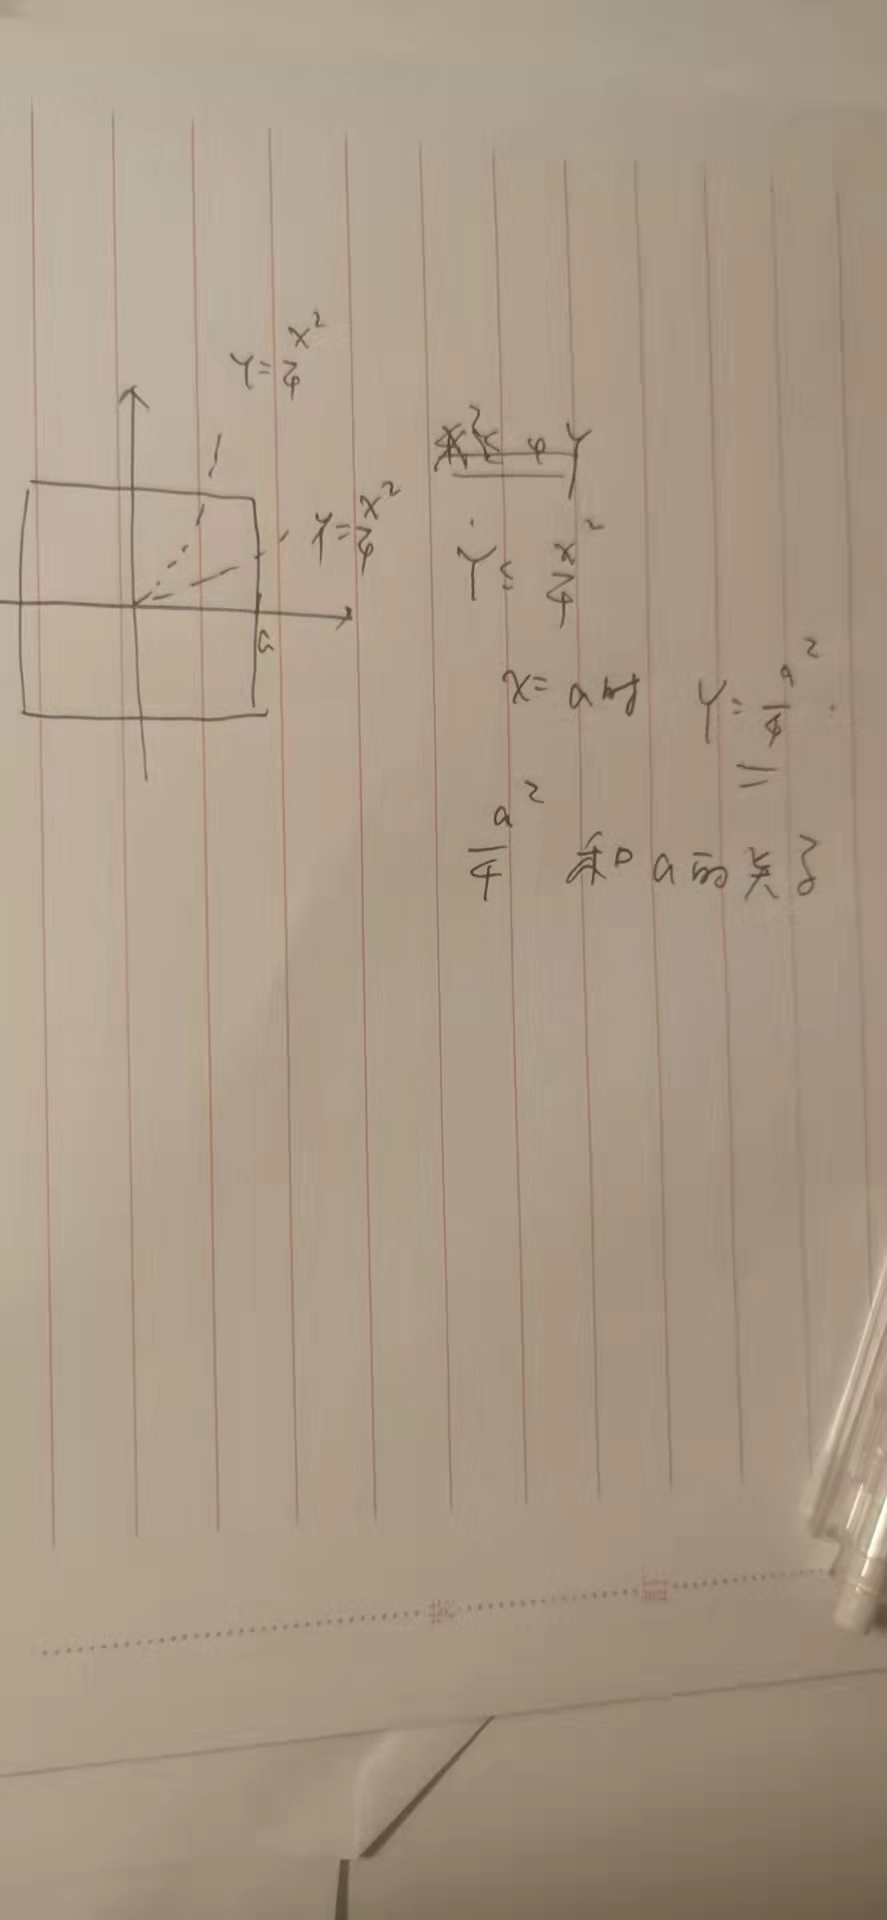 Y = x²/4
Y = x²/4
a
x² ≤ 4Y
Y ≤ x²/4
x = a时 Y = a²/4
a²/4 和 a 的关子